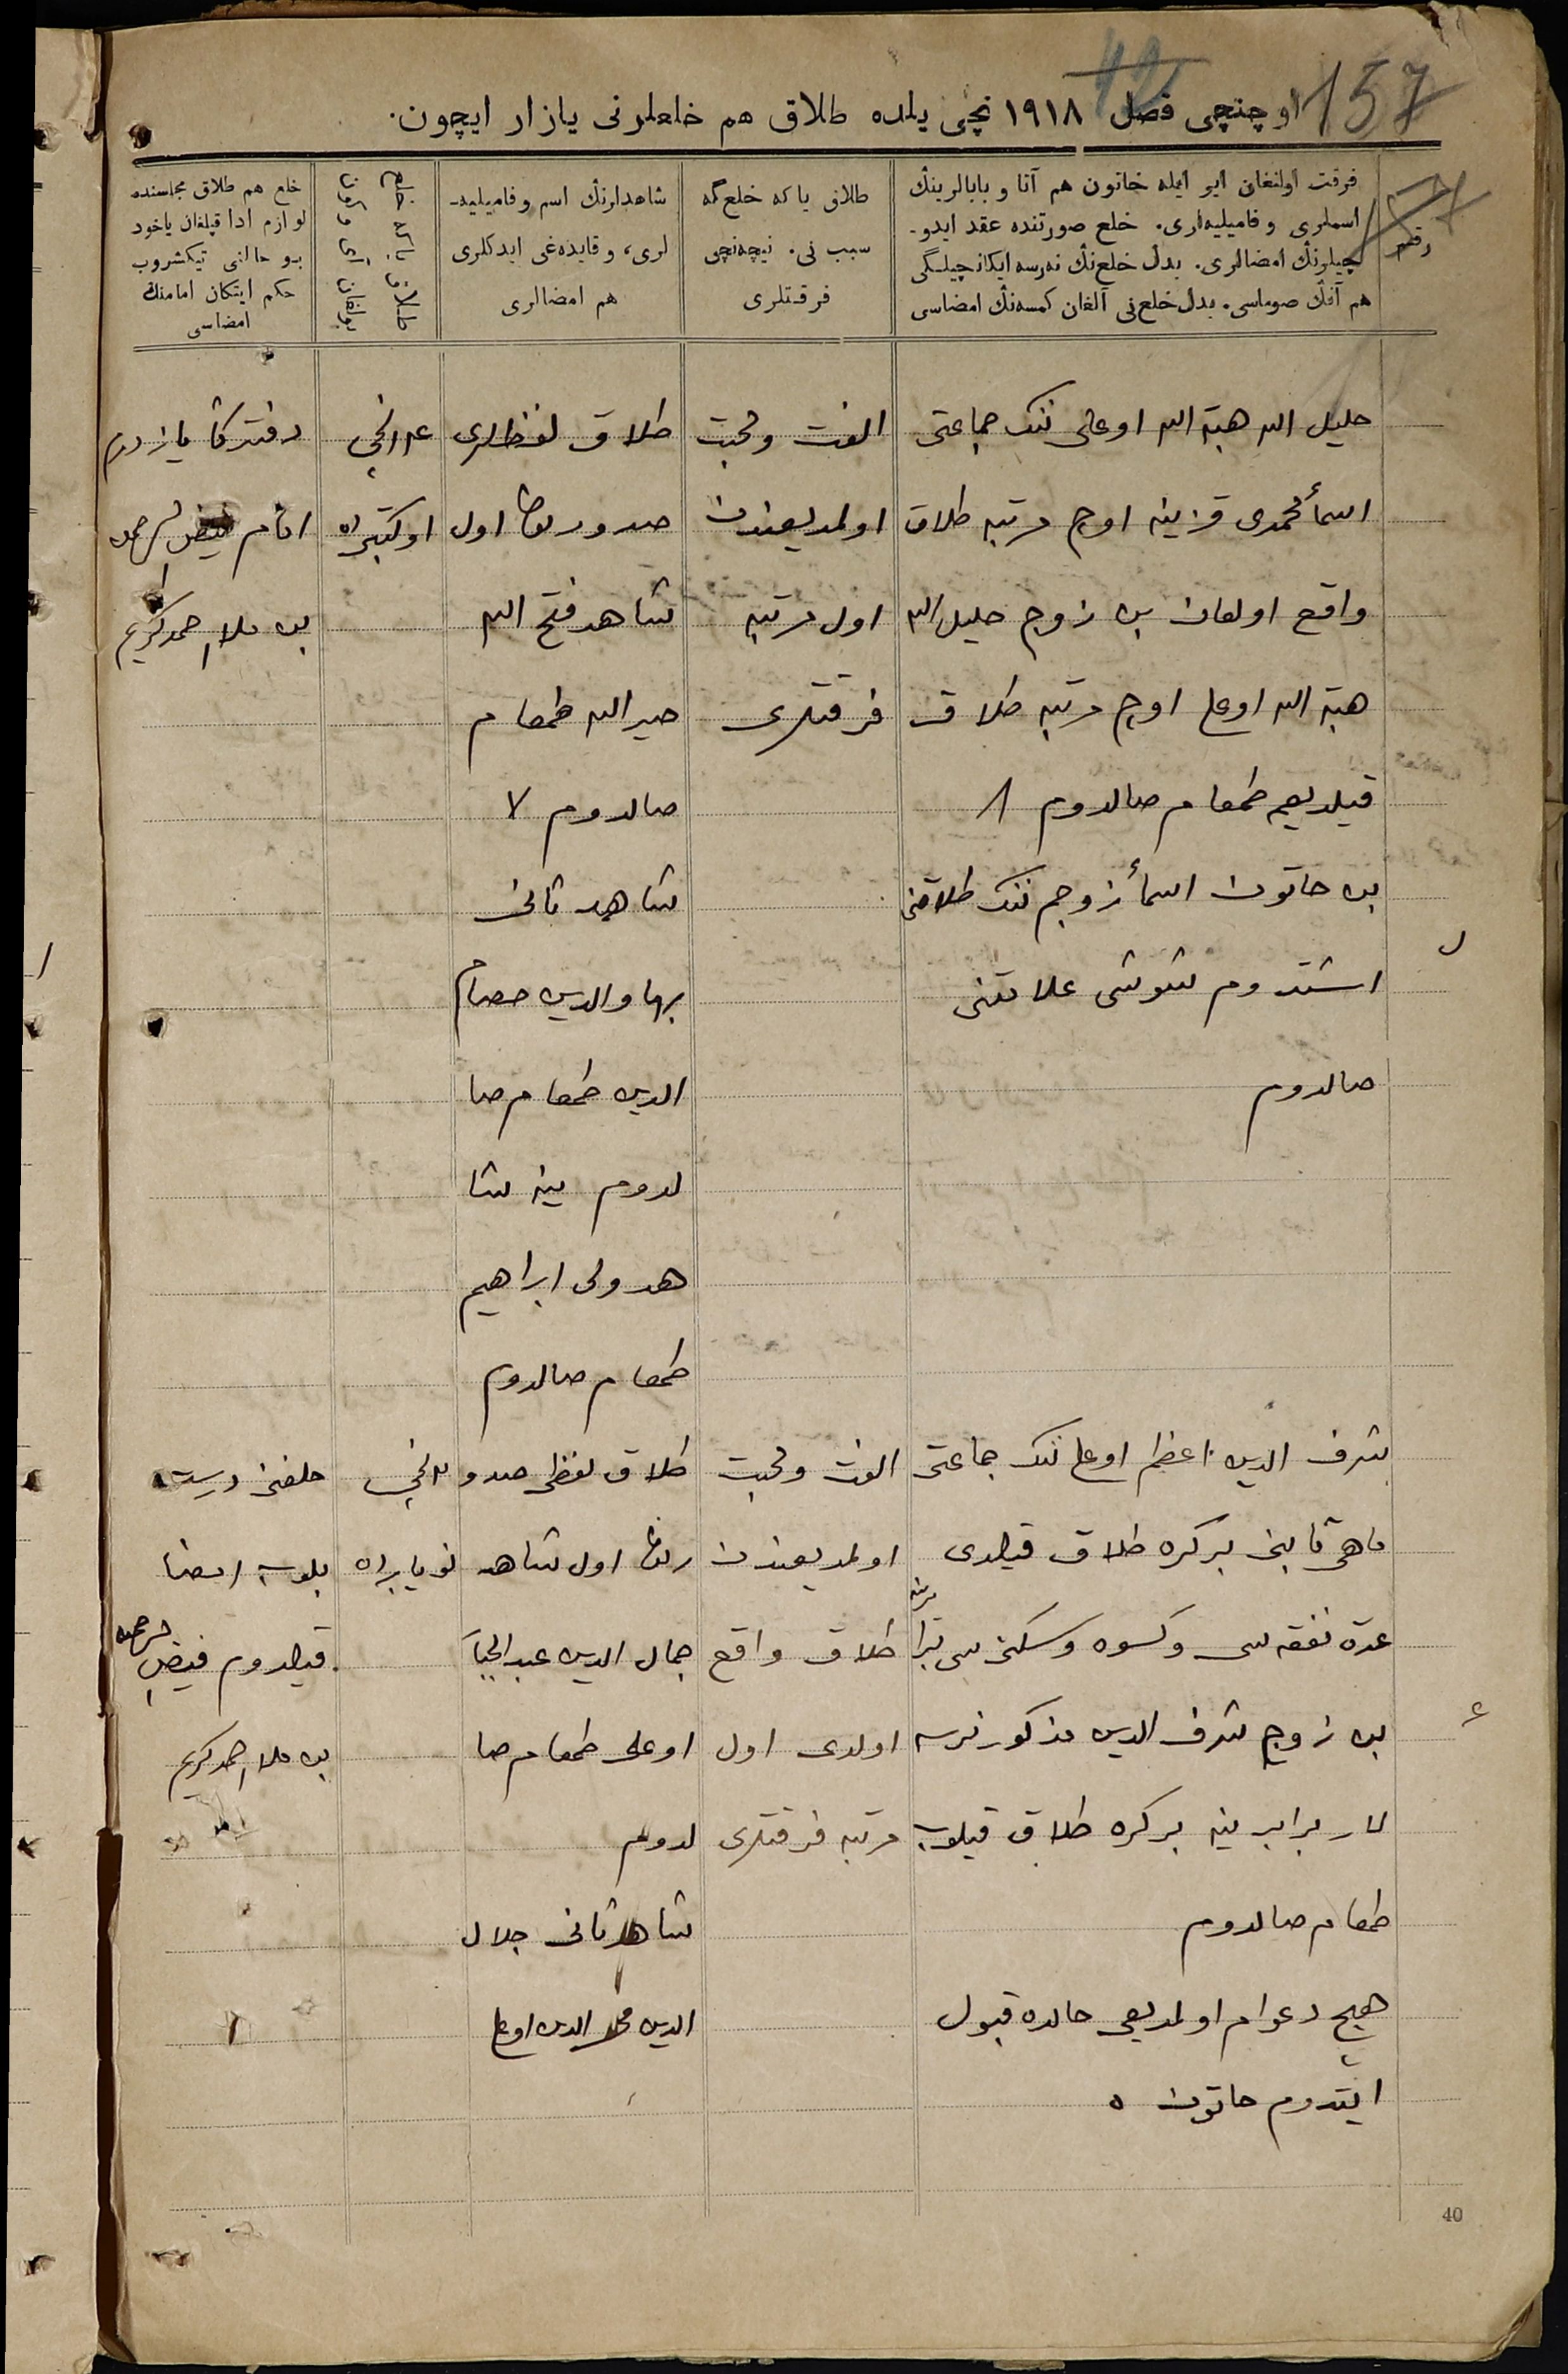 157
42
اوچنچی فصل ١٩١٨ نچی یلده طلاق هم خلعلرنی یازار ایچون.
رقم
فرقت اولنغان ایر ایله خاتون هم آتا و بابالرینڭ
اسملری و فامیلیه‌لری. خلع صورتنده عقد ایدو-
چیلرنڭ امضالری. بدل خلع‌نڭ نه‌رسه ایکانچیلیگی
هم آنڭ صوماسی. بدل خلع‌نی آلغان کمسه‌نڭ امضاسی
طلاق یا که خلع گه
سبب نی. نیچه‌نچی
فرقتلری
شاهدلرنڭ اسم و فامیلیه-
لری، و قایده‌غی ایدکلری
هم امضالری
طلاق یا که خلع
بولغان آی و کون
خلع هم طلاق مجلسنده
لوازم ادا قیلغان یاخود
بو حالنی تیکشروب
حکم ایتکان امامنڭ
امضاسی
خلیل الله هبة الله اوغلی ننک جماعتی
اسمأ محمدی قزینه اوچ مرتبه طلاق
واقع اولغان بن زوج خلیل الله
هبة الله اوغلی اوچ مرتبه طلاق
قیلدیغمه طمغام صالدوم ٨
بن خاتون اسمأ زوجم ننک طلاقنی
اشتدوم شوشی علامتنی
صالدوم
الفت ومحبت
اولمدیغندن
اول مرتبه
فرقتلری
طلاق لفظلری
صدور بولغا اول
شاهد فتح الله
خیر الله طمغام
صالدوم ٧
شاهد ثانی
بهاوالدین حصام
الدین طمغام صا
لدوم ینه شا
هد ولی ابراهیم
طمغام صالدوم
نچی
اوکتبرده
دفترکا یازدم
امام فیض الرحمن
بن ملا احمدکریم
شرف الدین اعظم اوغلی ننک جماعتی
ماهی تابنی بر کره طلاق قیلدی
عدة نفقه سی وکسوه وسکنی سی
بن زوج شرف الدین مذکور نرسه
لار برابرینه بر کره طلاق قیلوب
طمغام صالدوم
هیچ دعوام اولمدیغی حالده قبول
ایتدوم خاتون ٥
الفت ومحبت
اولمدیغندن
طلاق واقع
اولدی اول
مرتبه فرقتلری
طلاق لفظی صدو
ر بولغا اول شاهد
جمال الدین عبد الجبا
اوغلی طمغام صا
لدوم
شاهد ثانی جلال
الدین الدین اوغلی
نچی
نویابرده
خلفنی درست
بلوب امضا
قیلدوم فیض الرحمن
بن ملا احمدکریم
40